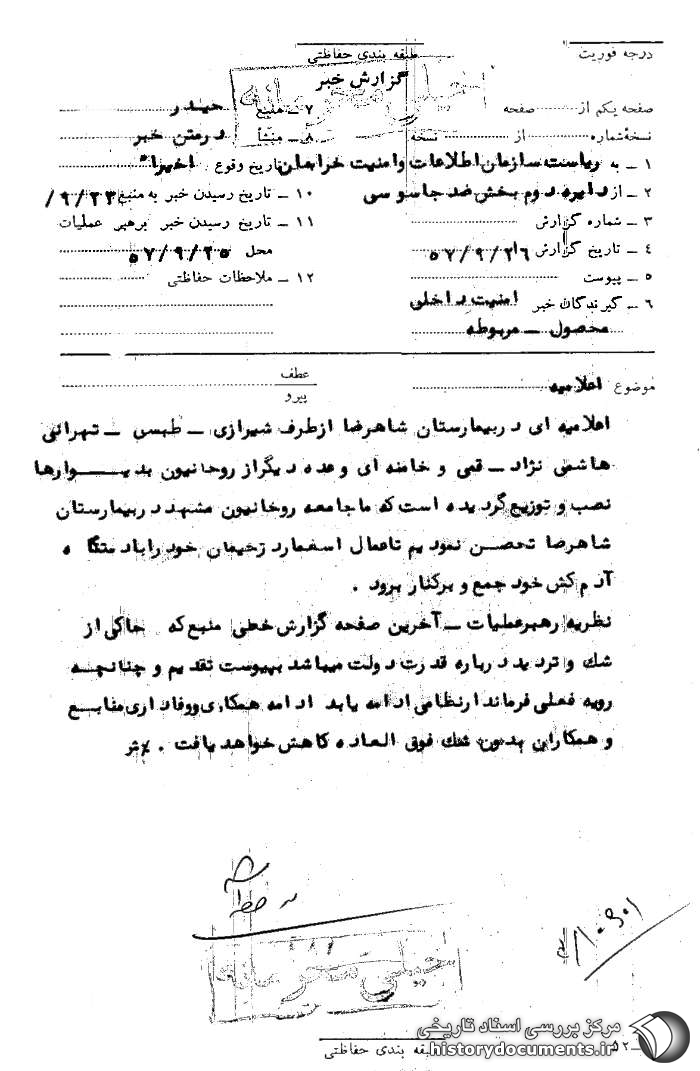 درجه فوریت
طبقه بندی حفاظتی
خیلی محرمانه
گزارش خبر
صفحه یکم از صفحه
نسخهٔ شماره از نسخه
۱ ـ به ریاست سازمان اطلاعات و امنیت خراسان
۲ ـ از دایره دوم بخش ضد جاسوسی
۳ ـ شماره گزارش
۴ ـ تاریخ گزارش ۵۷/۹/۲۶
۵ ـ پیوست
۶ ـ گیرندگان خبر امنیت داخلی
محصول ـ مربوطه
۷ ـ منبع حیدر
۸ ـ منشأ درمتن خبر
تاریخ وقوع اخیرا"
۱۰ ـ تاریخ رسیدن خبر به منبع ۹/۲۳/
۱۱ ـ تاریخ رسیدن خبر برهبر عملیات
محل ۵۷/۹/۲۵
۱۲ ـ ملاحظات حفاظتی
موضوع اعلامیه
عطف
پیرو
اعلامیه ای دربیمارستان شاهرضا ازطرف شیرازی ـ طبسی ـ تهرانی
هاشمی نژاد ـ قمی و خامنه ای وعده دیگراز روحانیون بدیـــوارها
نصب و توزیع گردیده است که ماجامعه روحانیون مشهد دربیمارستان
شاهرضا تحصن نمودیم تاعمال اسفمارد زخیمان خود راباد ستگا ه
آدم کش خود جمع و برکنار برود .
نظریه رهبرعملیات ـ آخرین صفحه گزارش خطی منبع که حاکی از
شك و تردید درباره قدرت دولت میباشد بپیوست تقدیم و چنانچـه
رویه فعلی فرماندارنظامی ادامه یابد ادامه همکاری ووفاداری منابـع
و همکاران بدون شك فوق العاده کاهش خواهد یافت .
خیلی محرمانه
طبقه بندی حفاظتی
۵۲ ـ
مرکز بررسی اسناد تاریخی
historydocuments.ir